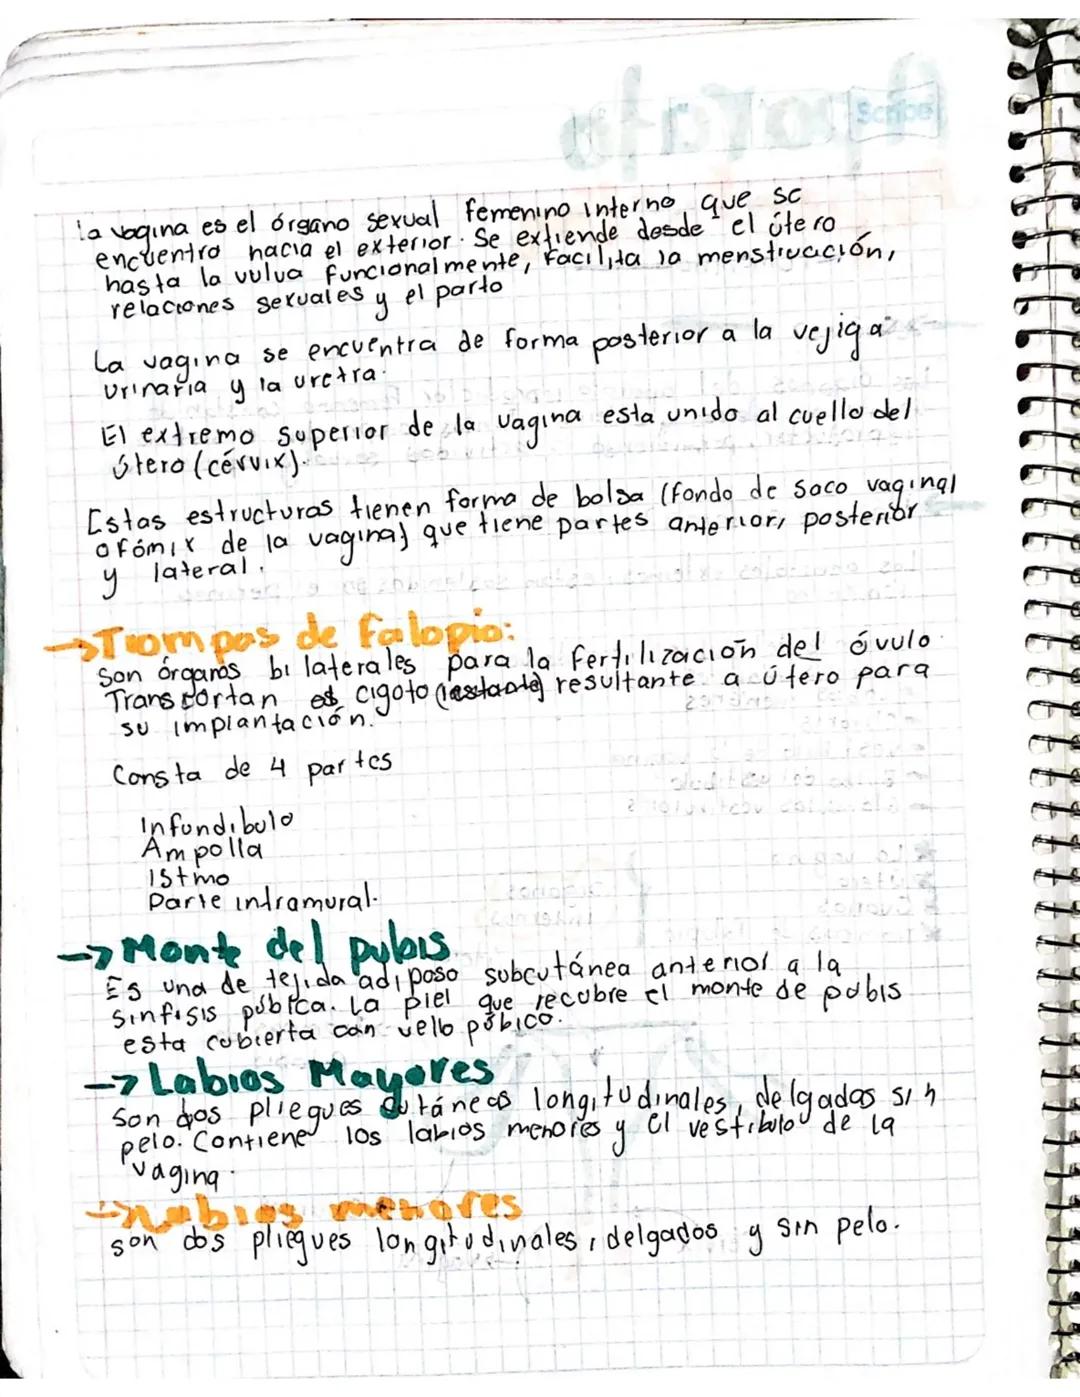 Scribe
La vagina es el órgano sexual femenino interno que se
encuentro hacia el exterior. Se extiende desde el útero
hasta la vulva funcionalmente, facilita la menstruación,
relaciones sexuales y el parto
La vagina se encuentra de forma posterior a la vejiga
urinaria y la uretra.
El extremo superior de la vagina esta unido al cuello del
útero (cérvix).
Estas estructuras tienen forma de bolsa (fondo de saco vaginal
o fómix de la vagina) que tiene partes anterior, posterior
y lateral.
→Trompas de falopio:
Son órganos bilaterales para la fertilización del óvulo.
Transportan el cigoto resultante a útero para
su implantación.
Consta de 4 partes
Infundibulo
Ampolla
Istmo
Parte intramural.
→Monte del pubis
Es una de tejida adiposo subcutánea anterior a la
sinfisis púbica. La piel que recubre el monte de pubis
esta cubierta con vello púbico.
→Labios Mayores
Son dos pliegues cutáneos longitudinales, delgados sin
pelo. Contiene los labios menores y el vestibulo de la
vagina.
→Labios menores
son dos pliegues longitudinales, delgados y sin pelo.